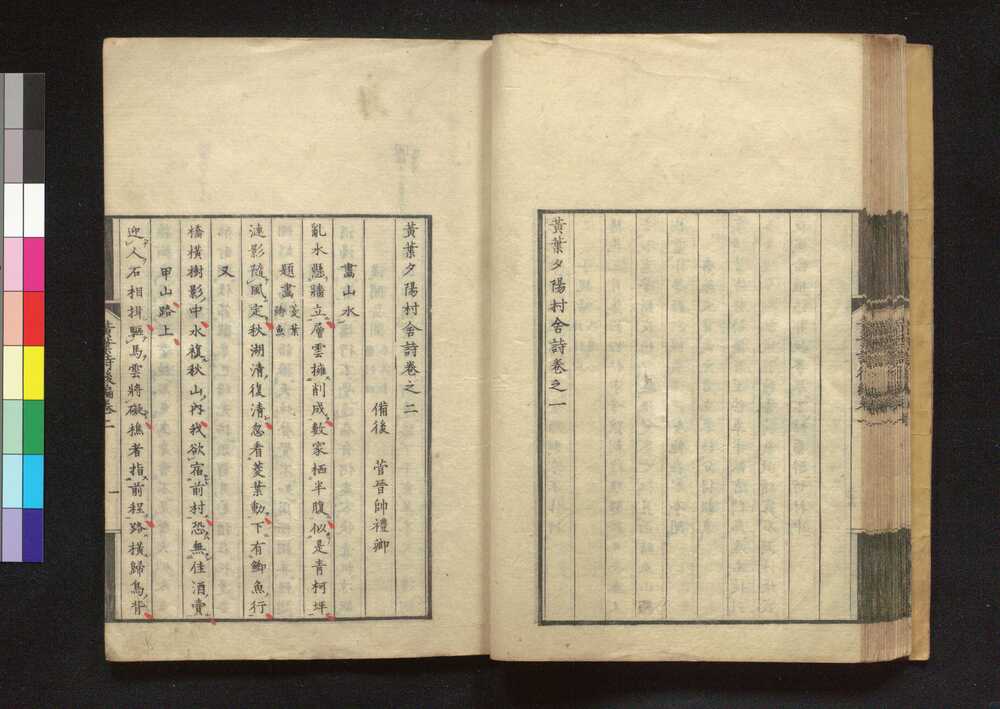 黄葉夕陽村舍詩卷之一
黄葉夕陽村舍詩卷之二
備後 菅晉帥禮卿
畫山水
亂水懸牆立層雲擁削成數家栖半腹似是青柯坪
題畫
漣影隨風定秋湖清復清忽看菱葉動下有鯽魚行
又
橋橫樹影中水複秋山內我欲宿前村恐無佳酒賣
甲山路上
迎人石相揖驅馬雲將礙樵者指前程路橫歸鳥背